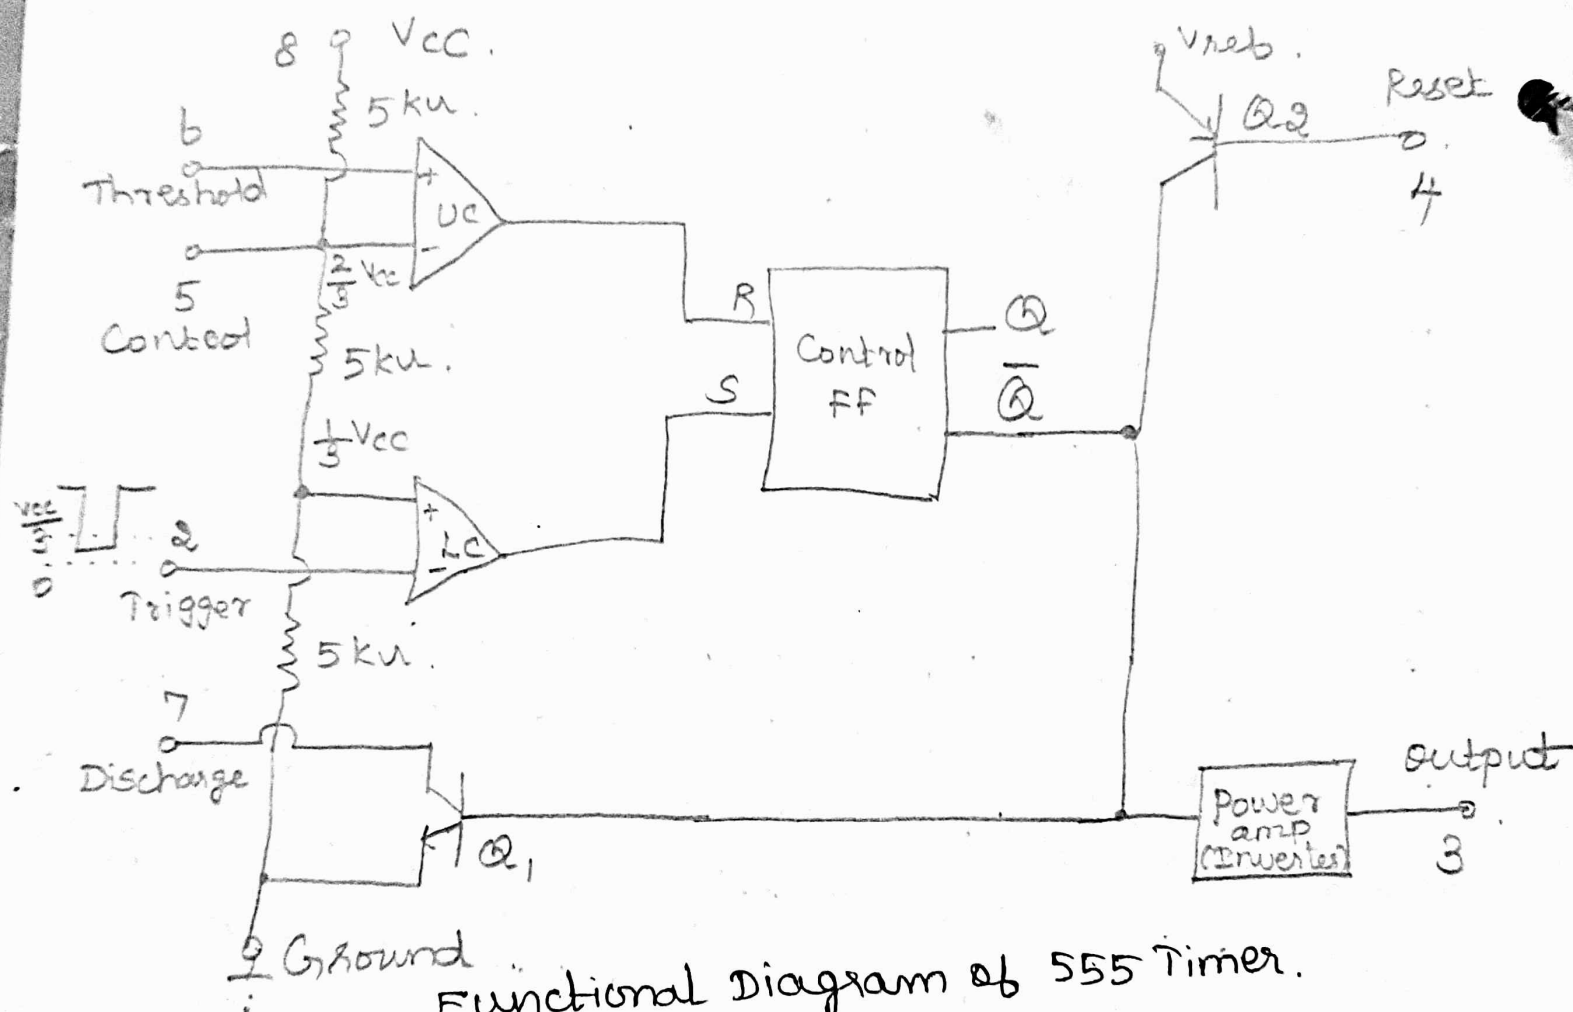 8 Vcc.
5kΩ.
6
Threshold
+
UC
-
5
Control
2/3 Vcc
5kΩ.
1/3 Vcc
Vcc/3
0
2
Trigger
+
LC
-
5kΩ.
7
Discharge
Q1
Ground
1
R
S
Control
FF
Q
Q̅
Vref.
Q2
Reset
4
Power
amp
(Inverter)
Output
3
Functional Diagram of 555 Timer.